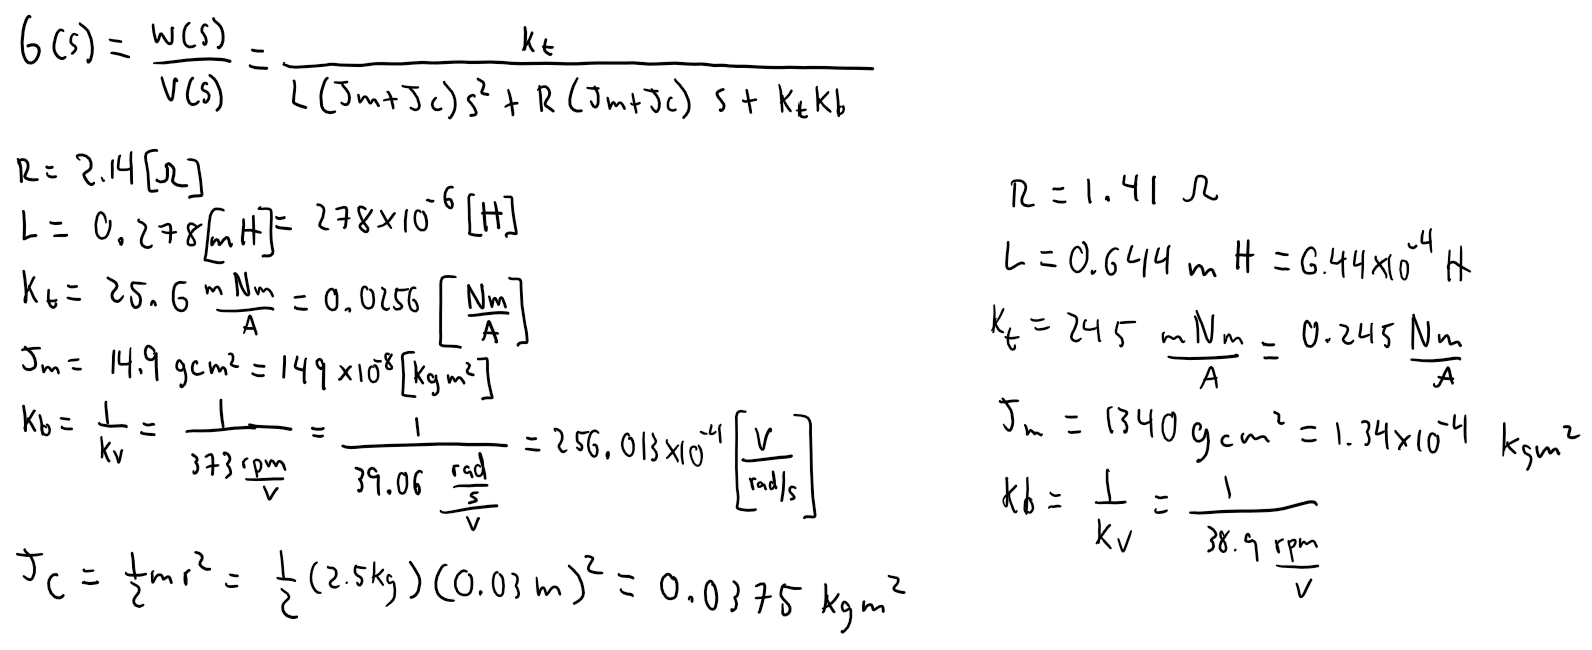 G(s) = W(s)/V(s) = Kt / (L(Jm+Jc)s² + R(Jm+Jc) s + KtKb)
R = 2.14 [Ω]
L = 0.278 [mH] = 278×10⁻⁶ [H]
Kt = 25.6 mNm/A = 0.0256 [Nm/A]
Jm = 14.9 gcm² = 149×10⁻⁸ [kgm²]
Kb = 1/Kv = 1/(373 rpm/V) = 1/(39.06 rad/s/V) = 256.013×10⁻⁴ [V/rad/s]
Jc = ½mr² = ½(2.5kg)(0.03m)² = 0.0375 kgm²
R = 1.41 Ω
L = 0.644 mH = 6.44×10⁻⁴ H
Kt = 245 mNm/A = 0.245 Nm/A
Jm = 1340 gcm² = 1.34×10⁻⁴ kgm²
Kb = 1/Kv = 1/(38.9 rpm/V)